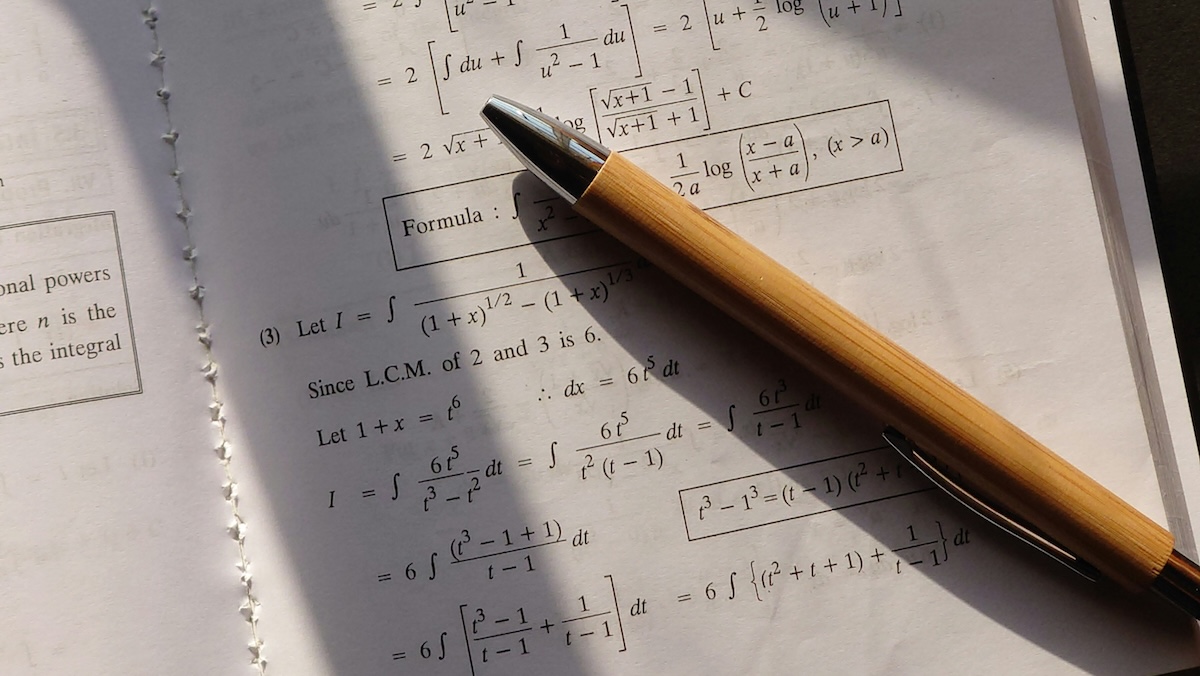 onal powers
ere n is the
s the integral
= 2 [∫ du + ∫ 1/(u² − 1) du] = 2 [u + 1/2 log (u + 1)]
= 2 √x + log [(√x+1 − 1)/(√x+1 + 1)] + C
Formula : ∫ x² 1/2a log ((x − a)/(x + a)), (x > a)
(3) Let I = ∫ 1/((1 + x)^1/2 − (1 + x)^1/3)
Since L.C.M. of 2 and 3 is 6.
Let 1 + x = t⁶ ∴ dx = 6t⁵ dt
I = ∫ 6t⁵/(t³ − t²) dt = ∫ 6t⁵/(t² (t − 1)) dt = ∫ 6t³/(t − 1) dt
t³ − 1³ = (t − 1) (t² + t
= 6 ∫ (t³ − 1 + 1)/(t − 1) dt
= 6 ∫ [(t³ − 1)/(t − 1) + 1/(t − 1)] dt = 6 ∫ {(t² + t + 1) + 1/(t − 1)} dt